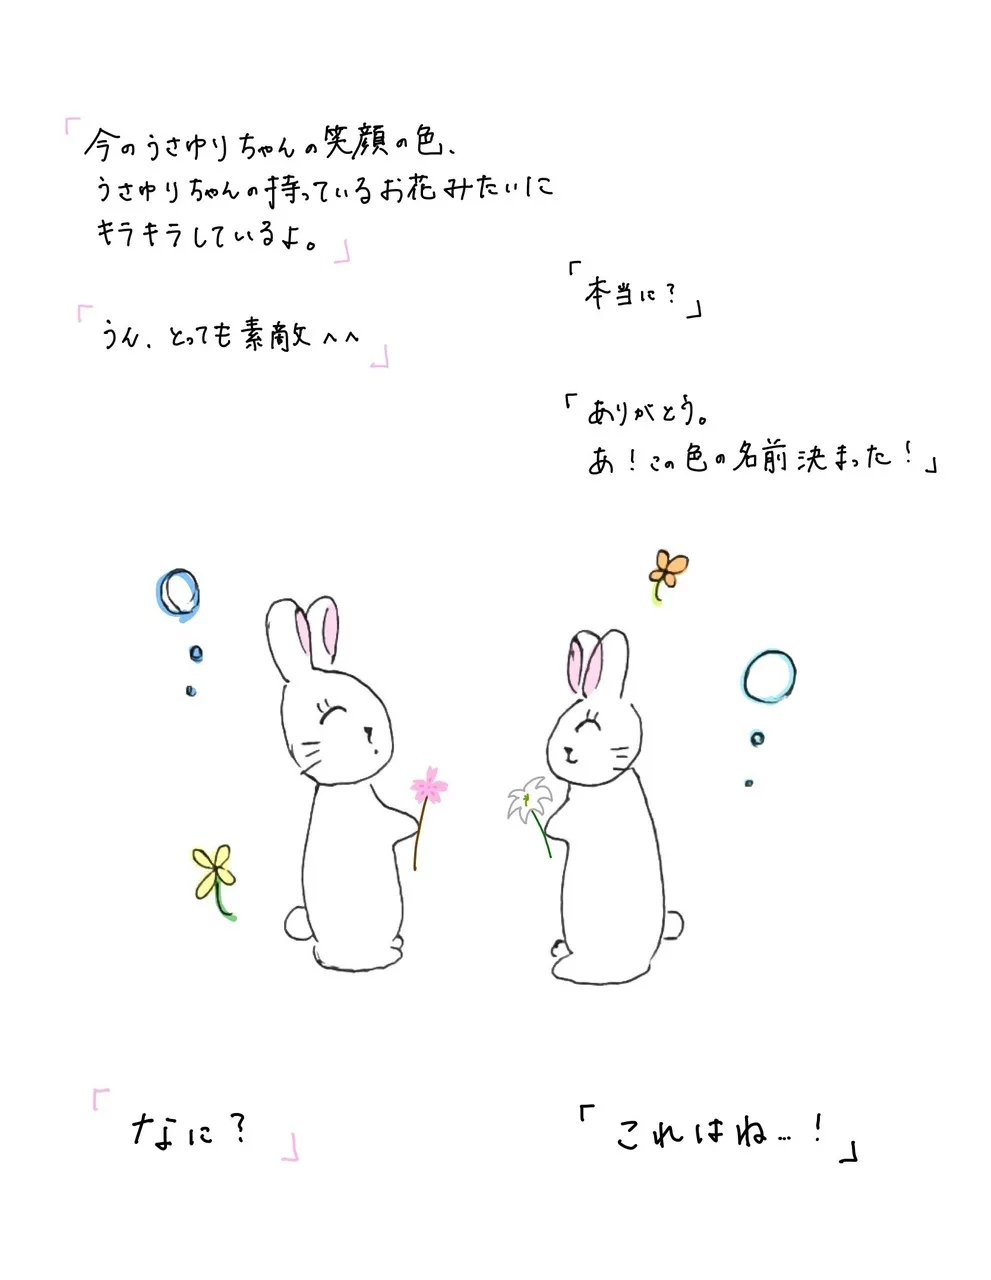 「今のうさゆりちゃんの笑顔の色、
うさゆりちゃんの持っているお花みたいに
キラキラしているよ。」
「本当に？」
「うん、とっても素敵^^」
「ありがとう。
あ！この色の名前決まった！」
「なに？」
「これはね…！」